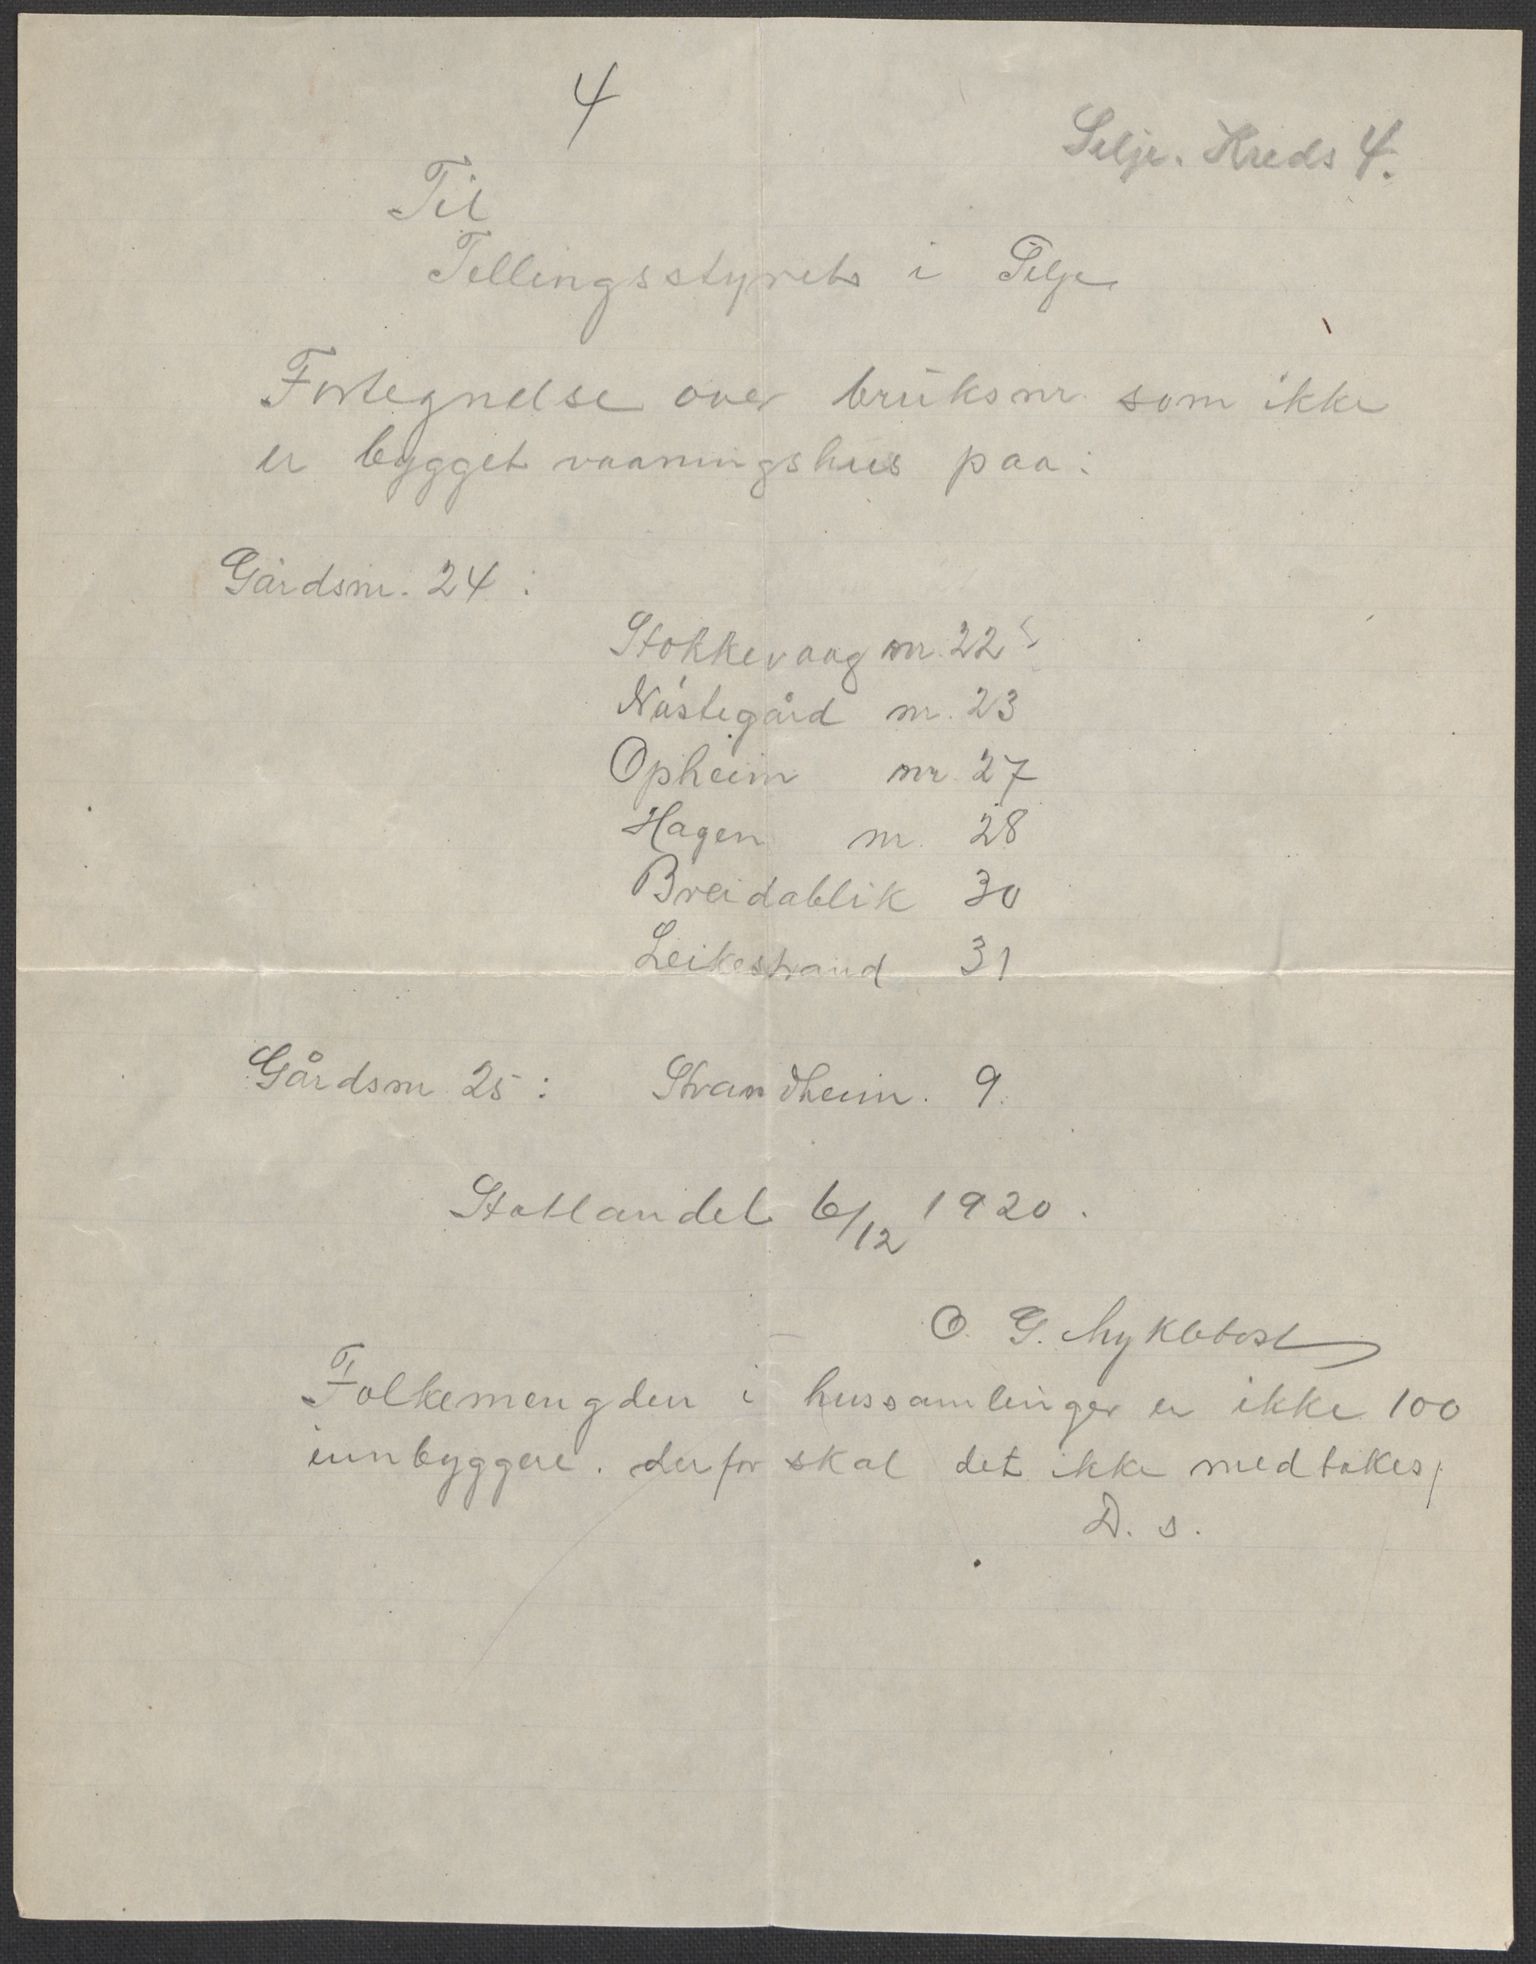 4
Selje. Kreds 4.
Til
Tellingsstyret i Selje
Fortegnelse over bruksnr som ikke
er bygget vaaningshus paa:
Gårdsnr. 24:
Stokkevaag nr. 22
Nåstegård nr. 23
Opheim nr. 27
Hagen nr. 28
Breidablik 30
Leikestrand 31
Gårdsnr 25: Strandheim. 9.
Statlandet 6/12 1920.
O. G. Myklebost
Folkemengden i hussamlinger er ikke 100
innbyggere. derfor skal det ikke medtakes,
D. s.